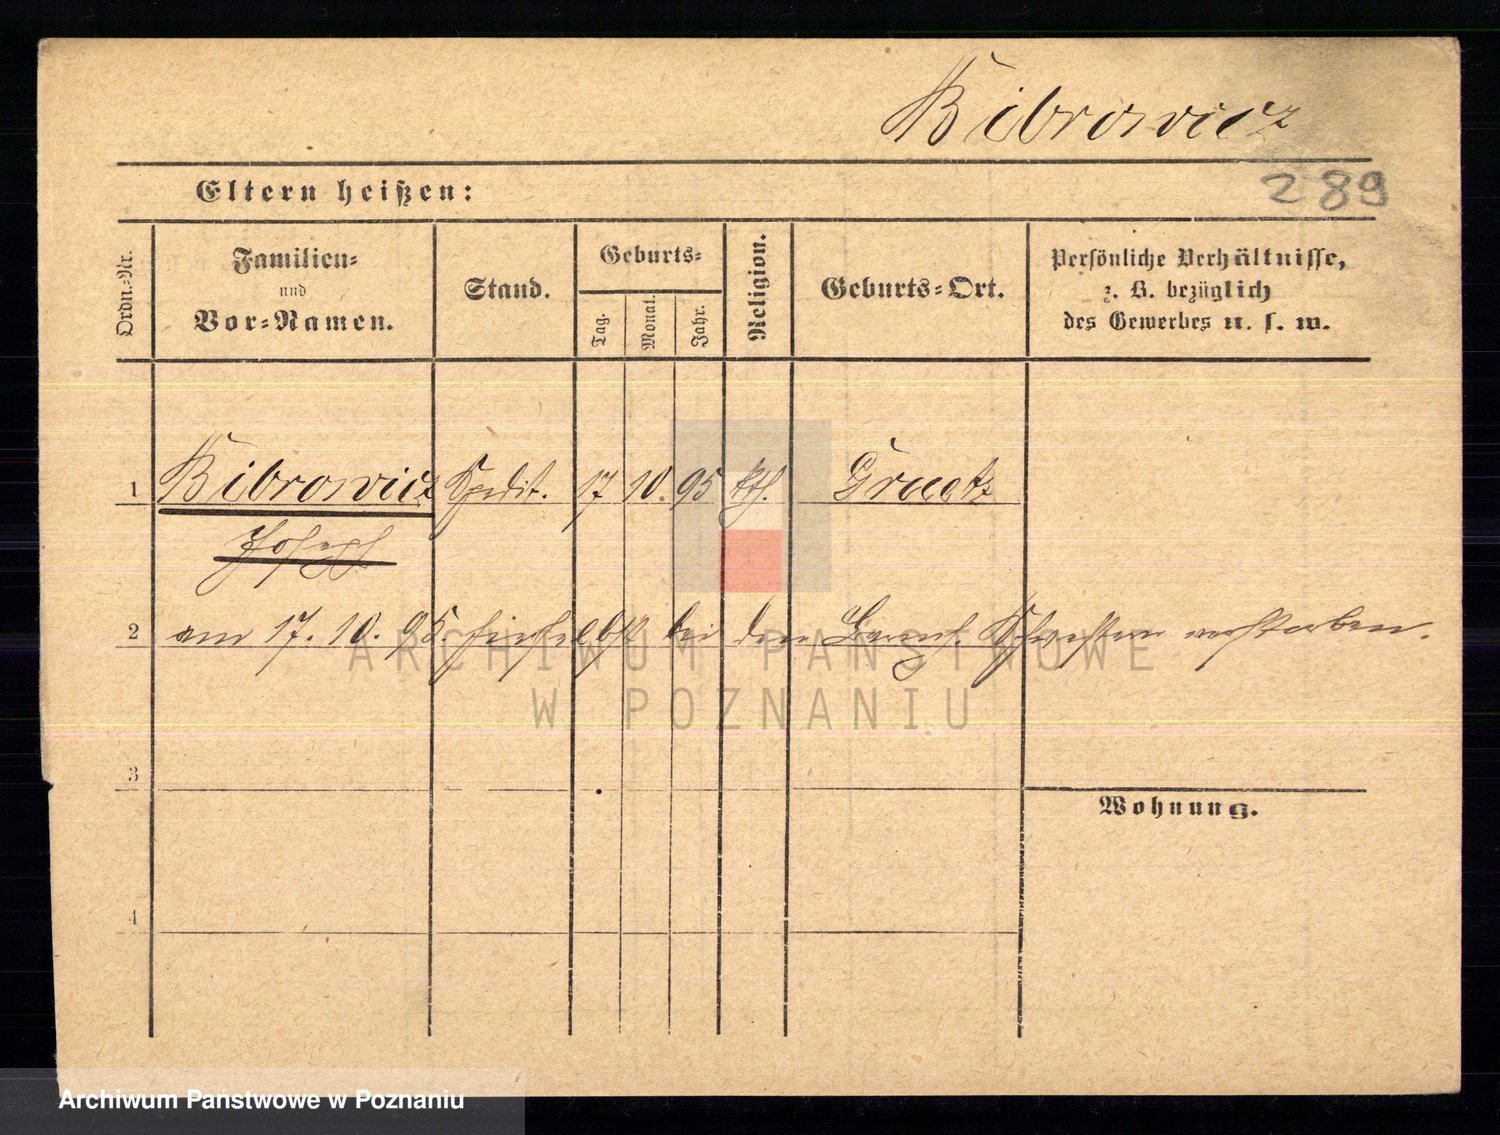 Bibrowicz
Eltern heißen:
289
Ordn.-Nr.
Familien-
und
Vor-Namen.
Stand.
Geburts-
Tag.
Monat.
Jahr.
Religion.
Geburts-Ort.
Persönliche Verhältnisse,
z. B. bezüglich
des Gewerbes u. s. w.
1 Bibrowicz 17 10. 95 kth. Graetz
Joseph
2 am 17. 10. 95. hierselbst bei den Barmh. Schwestern verstorben.
ARCHIWUM PAŃSTWOWE
W POZNANIU
3
Wohnung.
4
Archiwum Państwowe w Poznaniu